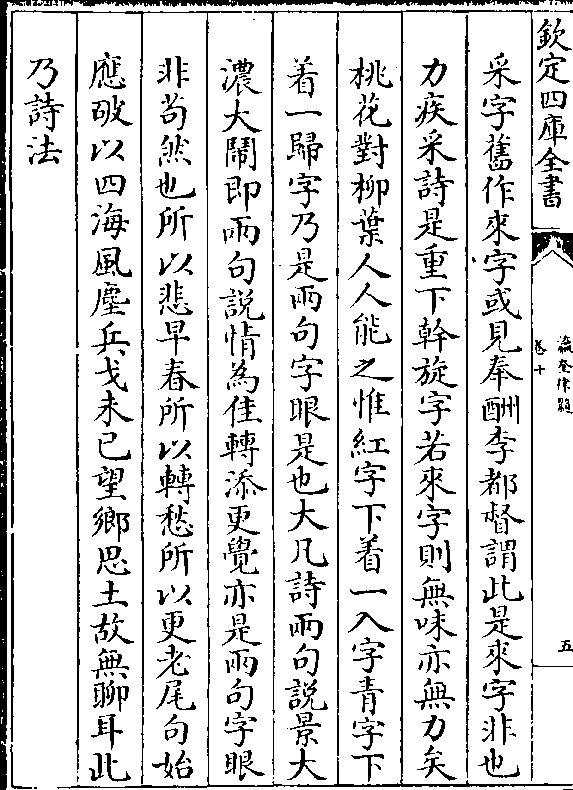 欽定四庫全書
瀛奎律髓
卷十
五
采字舊作來字或見奉酬李都督謂此是來字非也
力疾采詩是重下斡旋字若來字則無味亦無力矣
桃花對柳葉人人能之惟紅字下着一入字青字下
着一歸字乃是兩句字眼是也大凡詩兩句說景大
濃大鬧即兩句說情為佳轉添更覺亦是兩句字眼
非苟然也所以悲早春所以轉愁所以更老尾句始
應破以四海風塵兵戈未已望鄉思土故無聊耳此
乃詩法